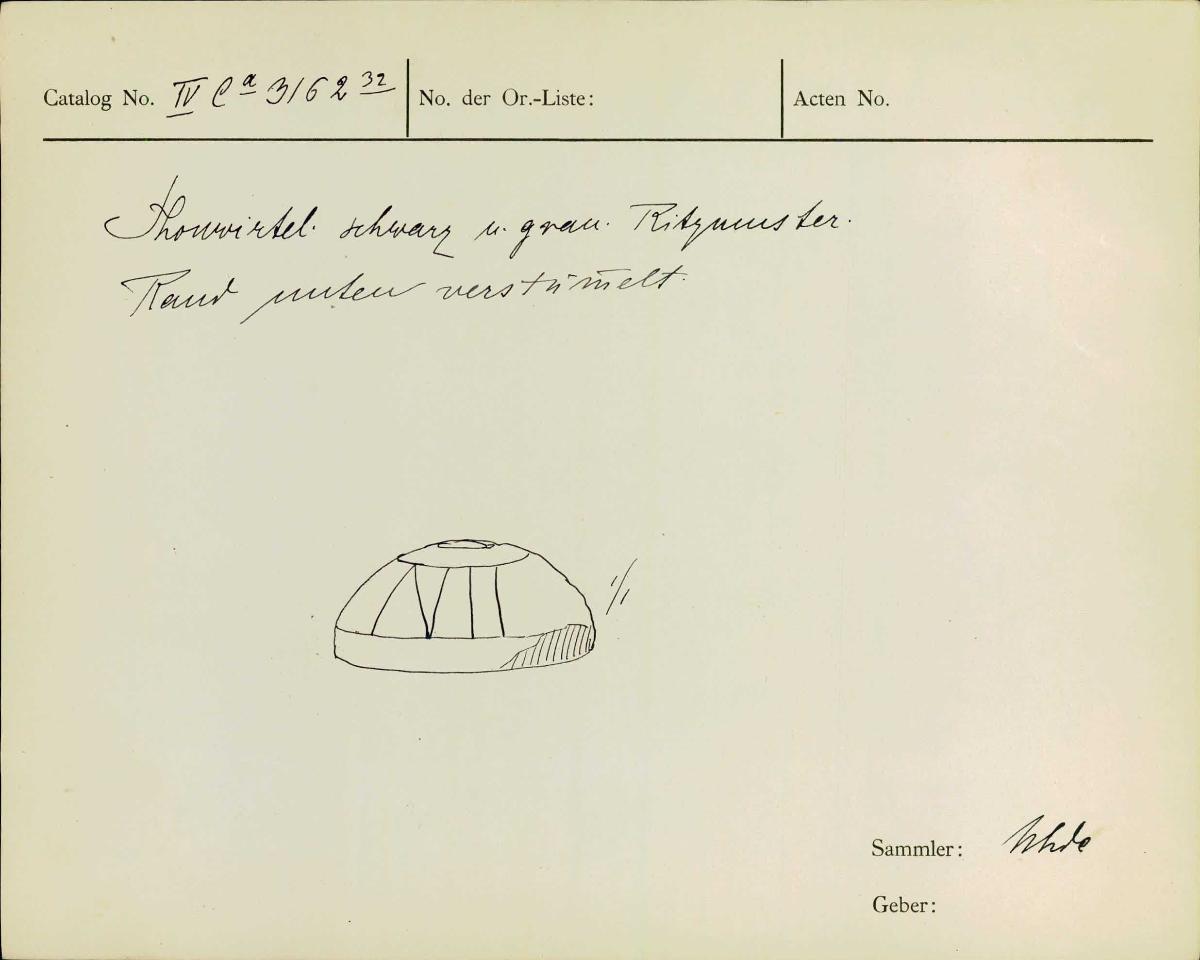 Catalog No. IV Ca 3162 32 No. der Or.-Liste: Acten No.
Thonwirtel. schwarz u. grau. Ritzmuster.
Rand unten verstümelt.
1/1
Sammler: Uhde
Geber: